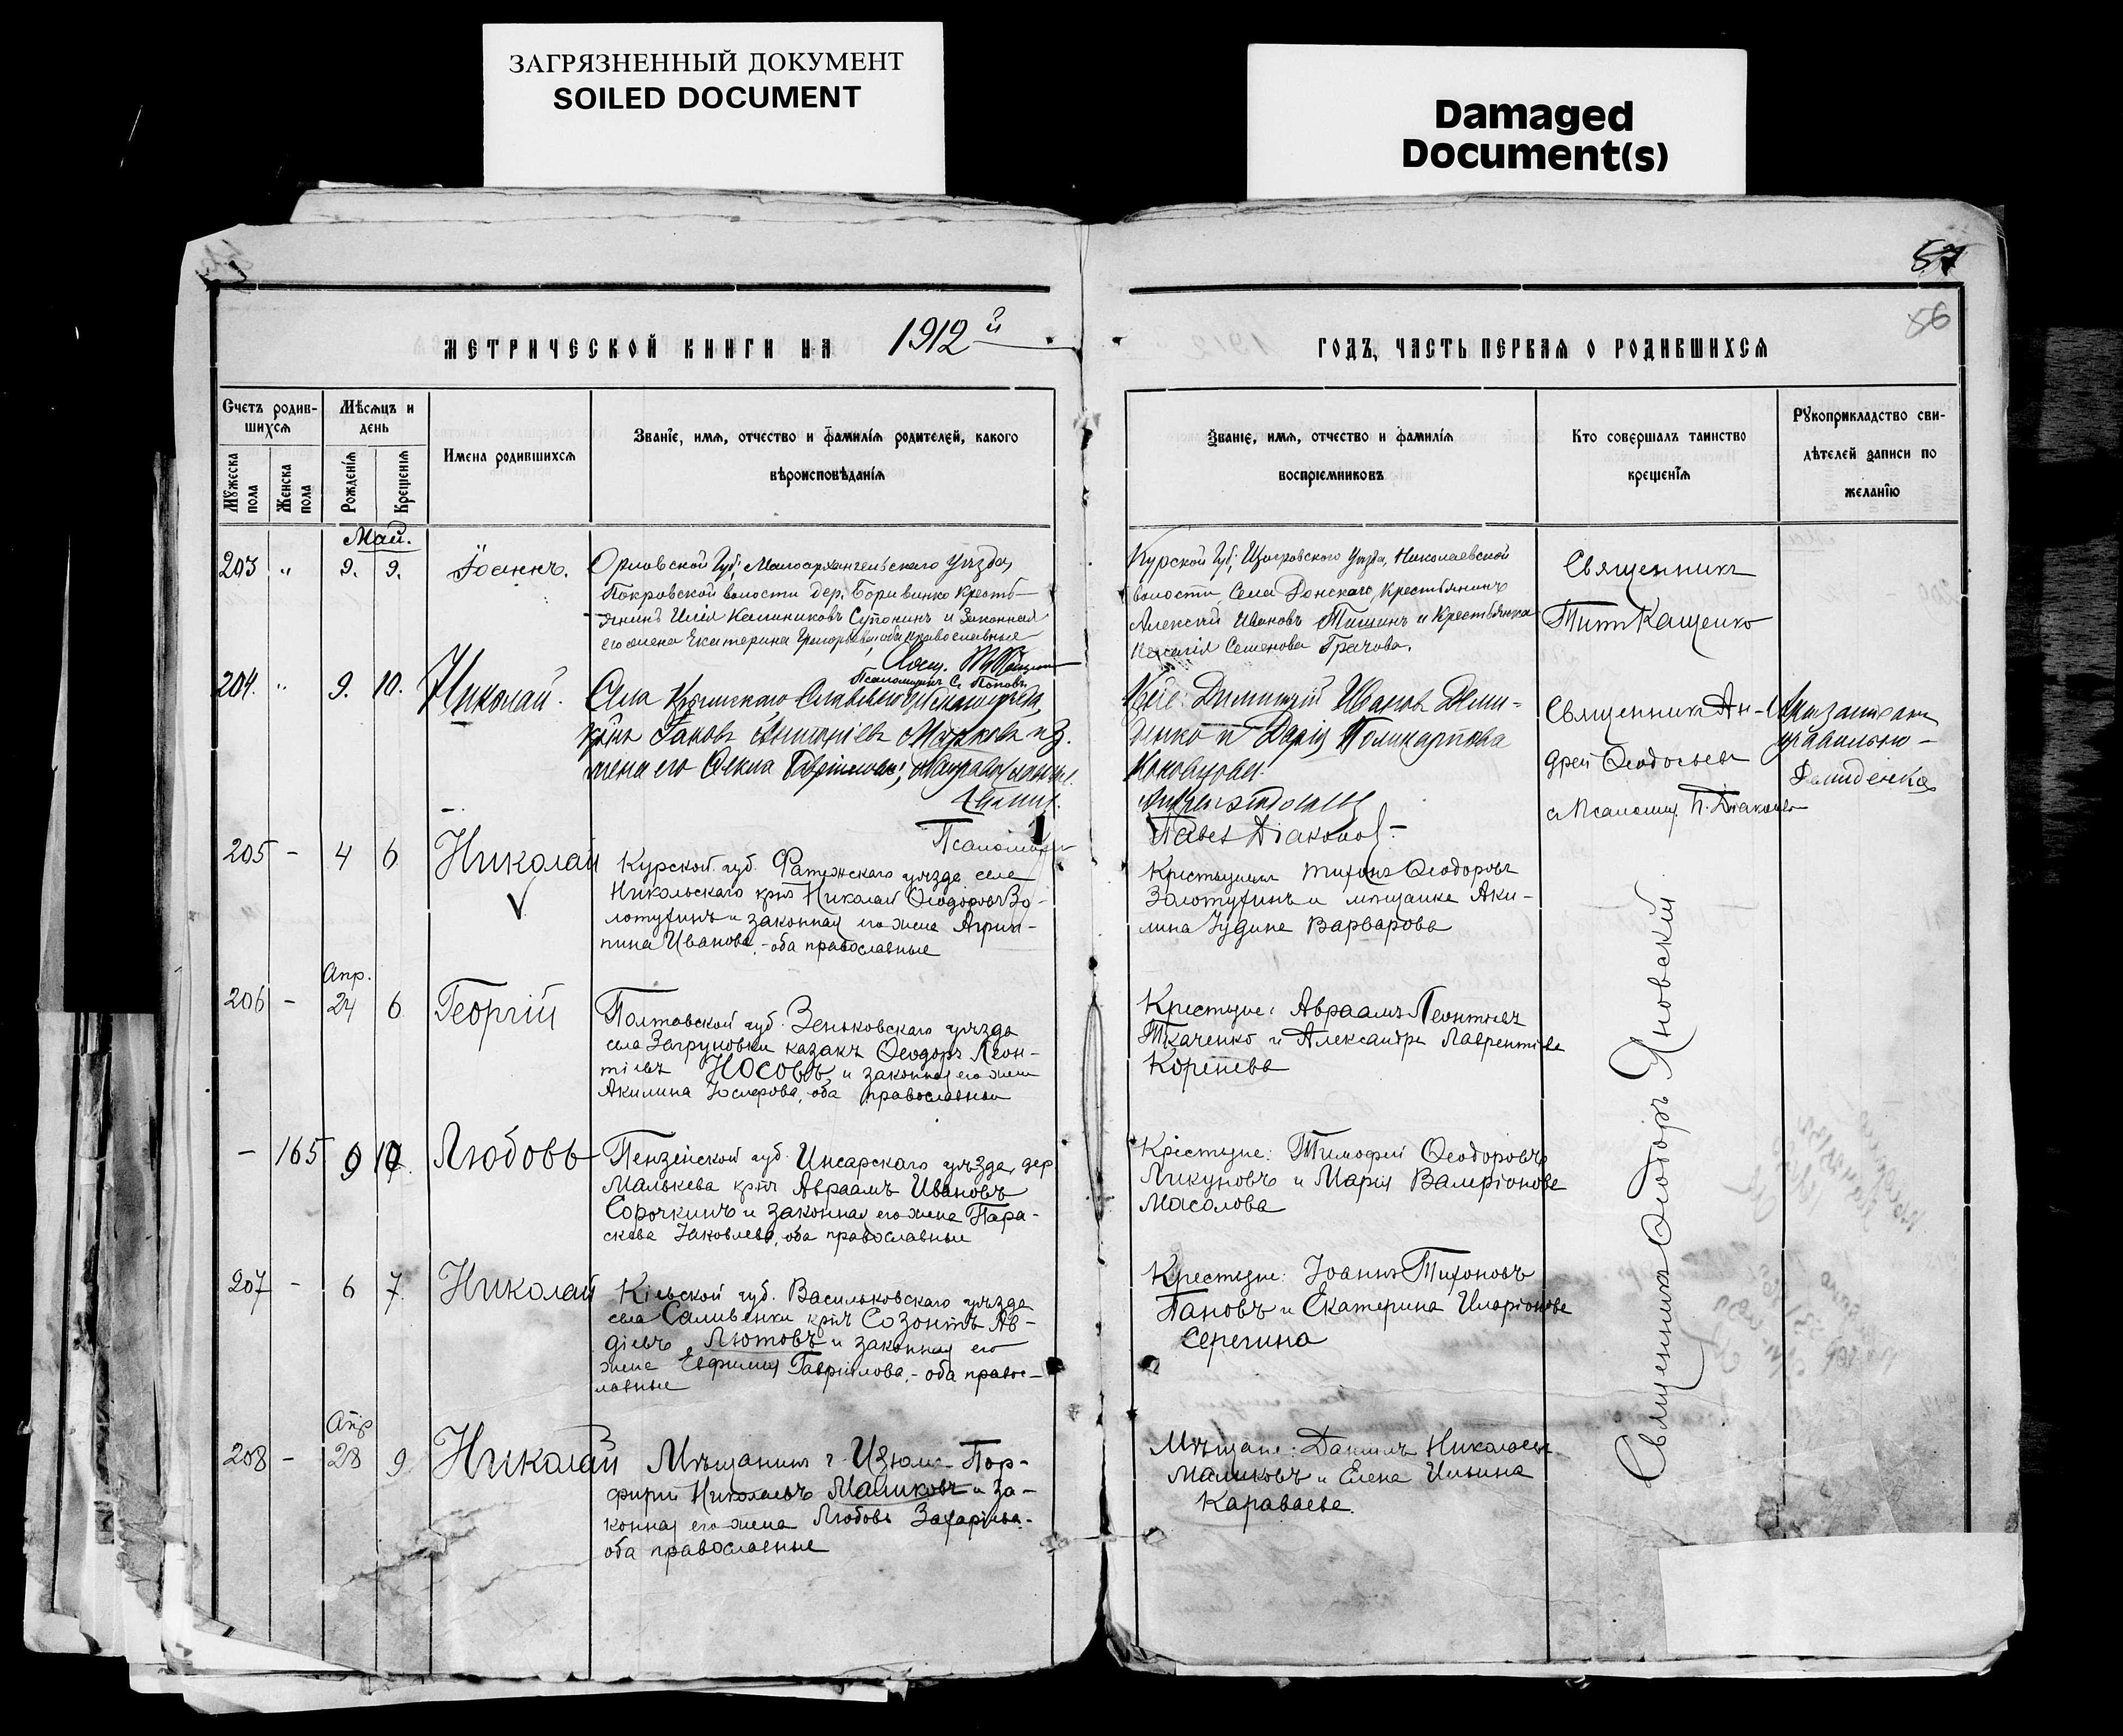 ЗАГРЯЗНЕННЫЙ ДОКУМЕНТ
SOILED DOCUMENT
Damaged
Document(s)
57
56
МЕТРИЧЕСКОЙ КНИГИ НА 1912й
ГОДЪ, ЧАСТЬ ПЕРВАЯ О РОДИВШИХСЯ
Счетъ родив-
шихся
Мужеска пола
Женска пола
Мѣсяцъ и
день
Рожденія
Крещенія
Имена родившихся
Званіе, имя, отчество и фамилія родителей, какого
вѣроисповѣданія
Званіе, имя, отчество и фамилія
воспріемниковъ
Кто совершалъ таинство
крещенія
Рукоприкладство сви-
дѣтелей записи по
желанію
Май.
203 " 9. 9. Іоаннъ.
Орловской Губ; Малоархангельскаго Уѣзда,
Покровской волости дер. Боривинко Кресть-
янинъ Илія Калиниковъ Супонинъ и Законная
его жена Екатерина Григорьева, оба православные
Псаломщикъ С. Поповъ
Курской Губ; Щигровскаго Уѣзда, Николаевской
волости, Села Донскаго, Крестьянинъ
Алексѣй Ивановъ Тишинъ и Крестьянка
Семенова Грачова.
Священникъ
Титъ Кащенко
204. " 9. 10. Николай.
Села
Іаковъ Марковъ и з.
жена его православные
Димитрій Ивановъ Деми-
денко и Дарія Поликарпова
Павелъ Діаконовъ.
Священникъ Ан-
дрей Ѳеодосьевъ
съ Псаломщ. П. Діаконовъ
правильно -
Демиденко
Псаломщ
205 - 4 6 Николай
Курской губ. Фатежскаго уѣзда села
Никольскаго крнъ Николай Ѳеодоровъ Зо-
лотухинъ и законная его жена Агрип-
пина Иванова, - оба православные
Крестьянинъ Тихонъ Ѳеодоровъ
Золотухинъ и мѣщанка Аки-
лина Іудина Варварова
Апр.
206 - 24 6 Георгій
Полтавской губ. Зеньковскаго уѣзда
села Загруновки казакъ Ѳеодоръ Леон-
тіевъ Носовъ и законная его жена
Акилина Іосифова, оба православные
Крестьяне: Авраамъ Леонтіевъ
Ткаченко и Александра Лаврентіева
Коренева
- 165 9 10 Любовь
Пензенской губ. Инсарскаго уѣзда, дер.
Малькева крнъ Авраамъ Ивановъ
Сорочкинъ и законная его жена Пара-
скева Іаковлева, оба православные
Крестьяне: Тимофей Ѳеодоровъ
Ликуновъ и Марія Валеріонова
Масалова
207 - 6 7 Николай
Кіевской губ. Васильковскаго уѣзда
села Саливенки крнъ Созонтъ Ав-
діевъ Лютовъ и законная его
жена Евфимія Гавріилова, - оба право-
славные
Крестьяне: Іоаннъ Тихоновъ
Пановъ и Екатерина Иларіонова
Серегина
Апр
208 - 28 9 Николай
Мѣщанинъ г. Изюма Пор-
фирій Николаевъ Маликовъ и за-
конная его жена Любовь Захаріева -
оба православные
Мѣщане: Даніилъ Николаевъ
Маликовъ и Елена Ильина
Караваева.
Священникъ Ѳеодоръ Яновскій